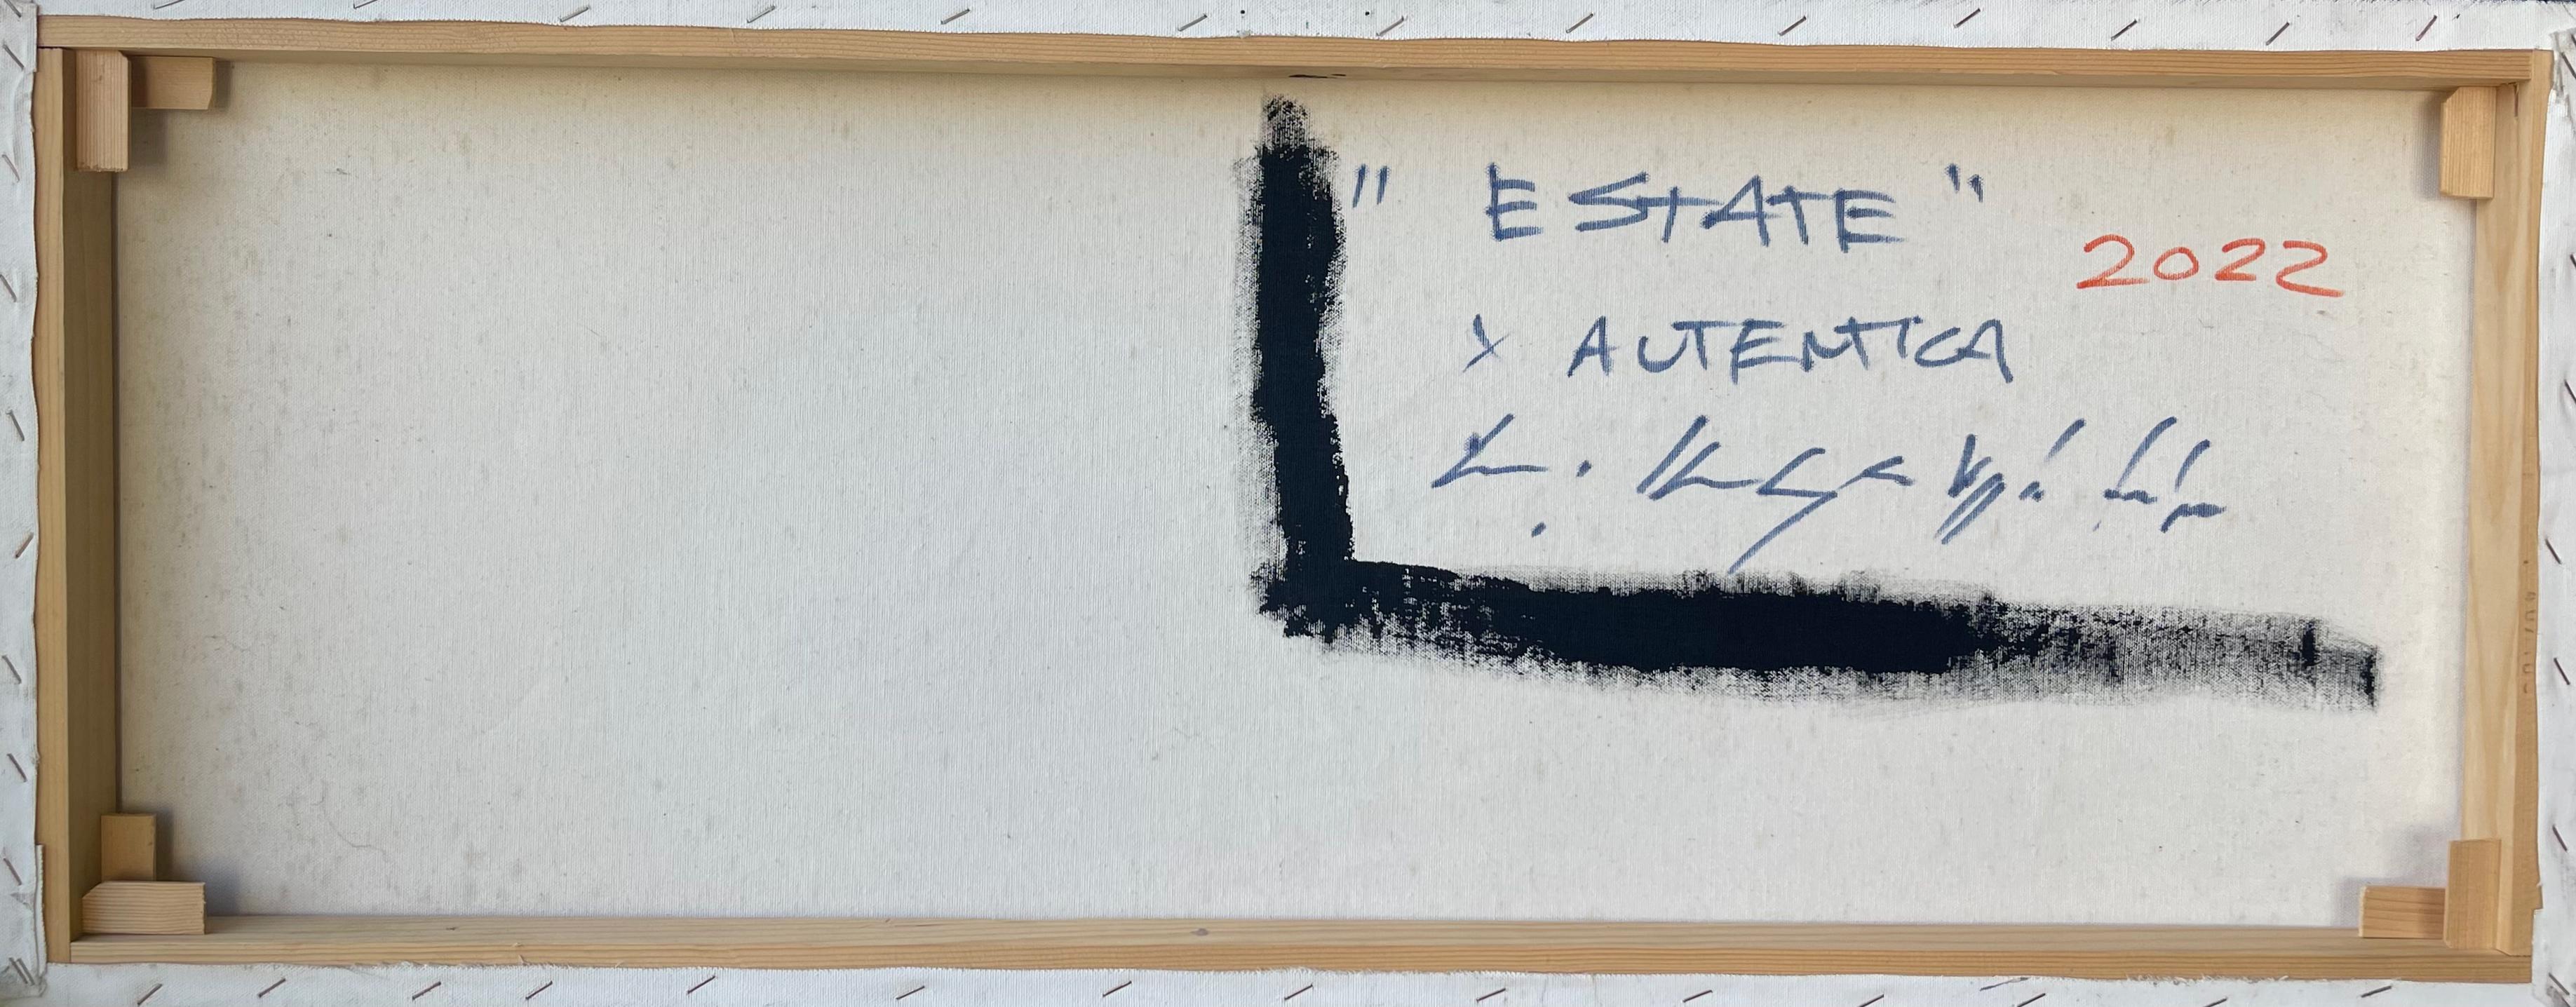 " ESTATE "
2022
X AUTENTICA